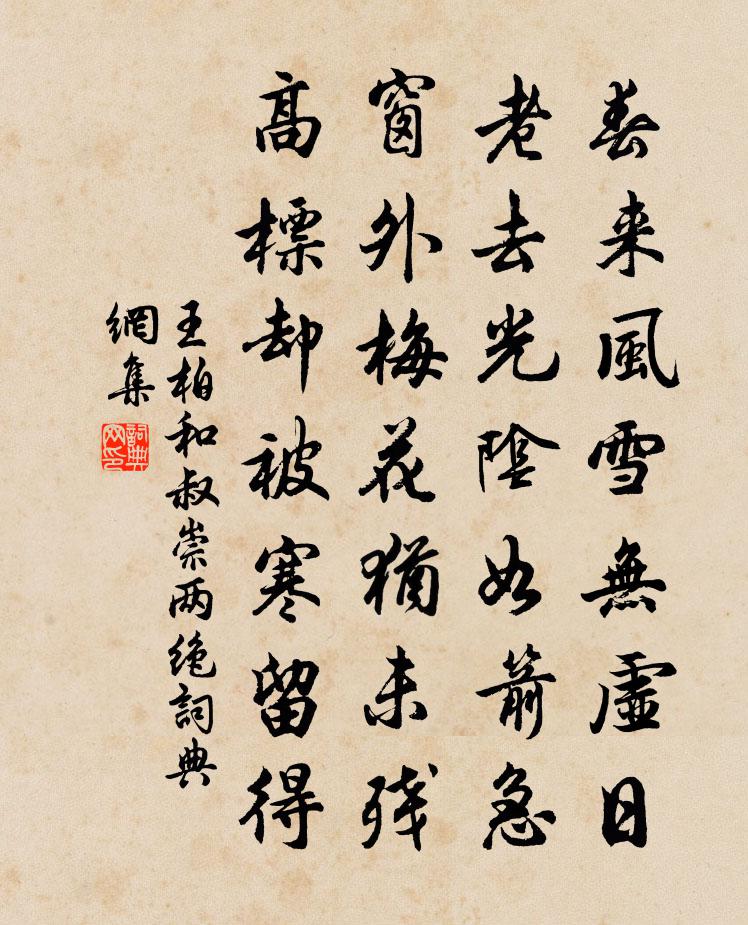 春来風雪無虛日
老去光陰如箭急
窗外梅花猶未殘
高標却被寒留得
王柏和叔崇两绝詞典
網集
詞典
网印